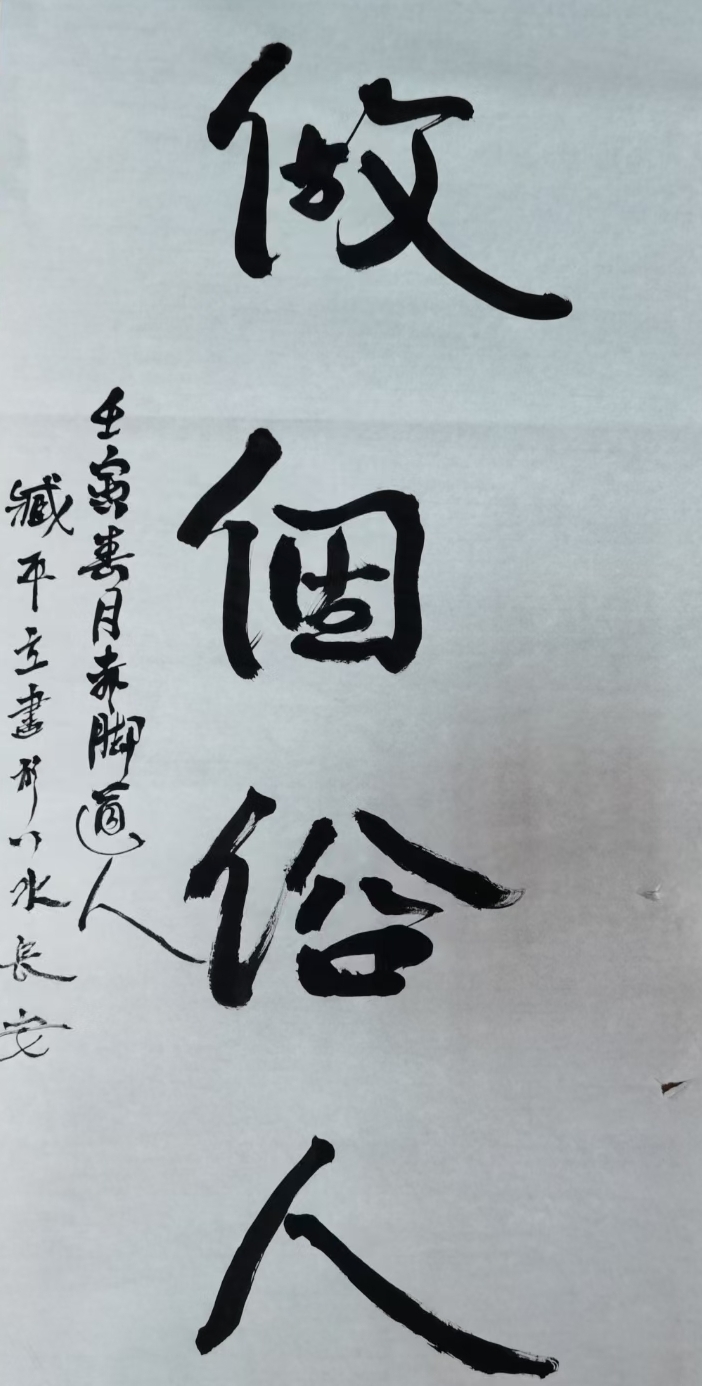 做個俗人
壬寅春月赤脚道人
臧平立書於水長安